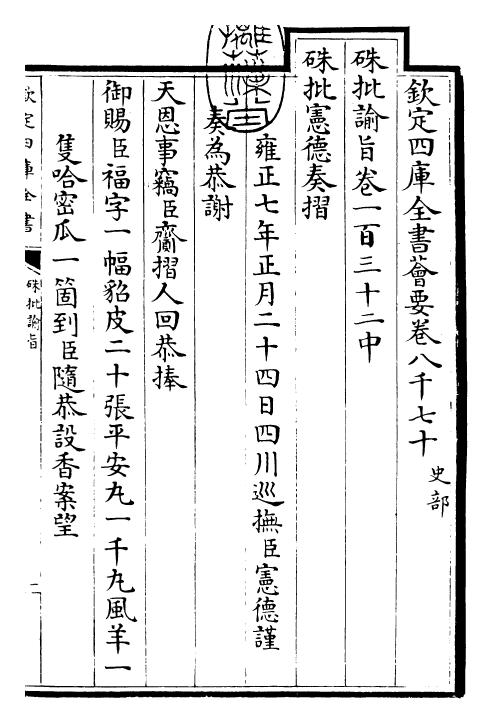 欽定四庫全書薈要卷八千七十 史部
硃批諭旨卷一百三十二中
硃批憲德奏摺
雍正七年正月二十四日四川巡撫臣憲德謹
奏為恭謝
天恩事竊臣齎摺人回恭捧
御賜臣福字一幅貂皮二十張平安丸一千丸風羊一
隻哈密瓜一箇到臣隨恭設香案望
欽定四庫全書
硃批諭旨